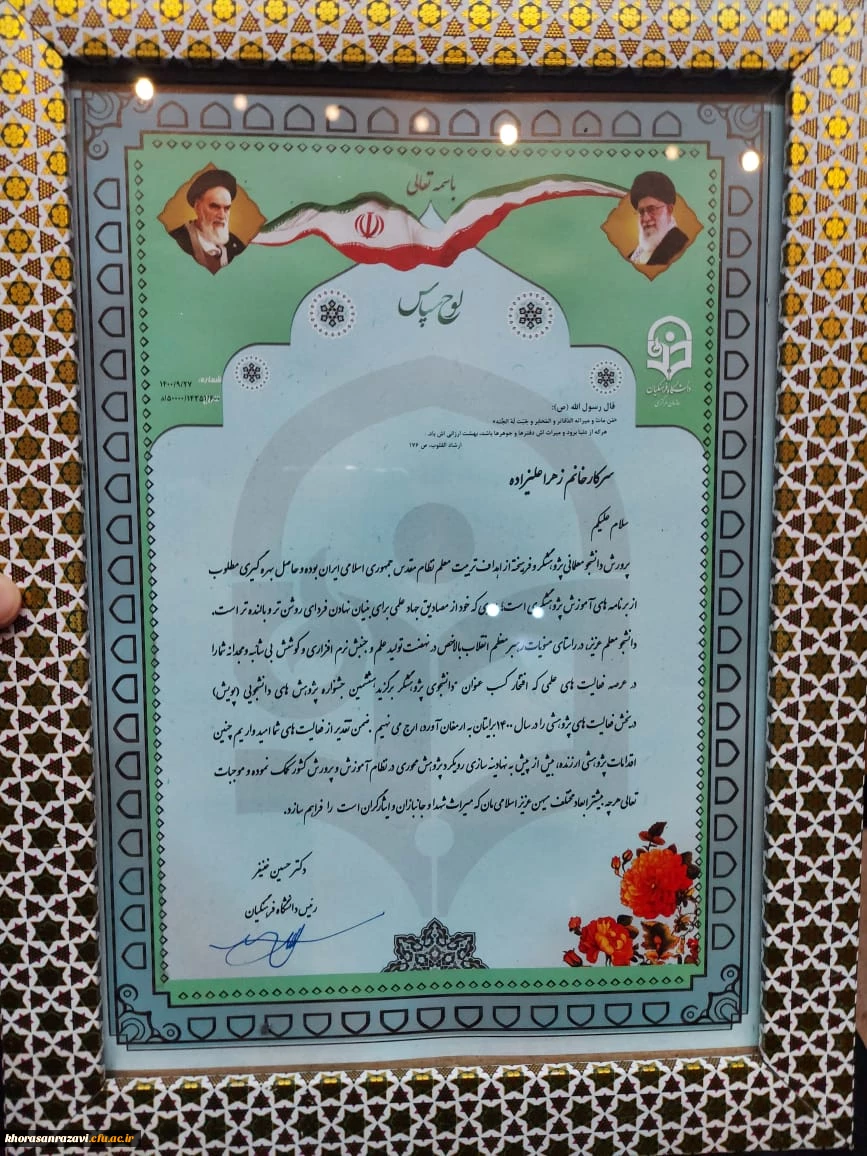 باسمه تعالی
لوح سپاس
دانشگاه فرهنگیان
سازمان مرکزی
شماره:
۱۴۰۰/۹/۲۷
قال رسول الله (ص):
هرکه از دنیا برود و میراث اش دفترها و جوهرها باشد، بهشت ارزانی اش باد.
ارشاد القلوب، ص ۱۷۶
سرکار خانم زهرا علیزاده
سلام علیکم
پرورش دانشجو معلمانی پژوهشگر و فریخته از اهداف تربیت معلم نظام مقدس جمهوری اسلامی ایران بوده و حاصل بهره گیری مطلوب
از برنامه های آموزش پژوهشگری است که خود از مصادیق جهاد علمی برای بنیان نهادن فردای روشن تر و بالنده تر است.
دانشجو معلم عزیز، در راستای منویات رهبر معظم انقلاب بالاخص در نهضت تولید علم و جنبش نرم افزاری و کوشش بی شائبه و مجدانه شما را
در عرصه فعالیت های علمی که افتخار کسب عنوان "دانشجوی پژوهشگر برگزیده هشتمین جشنواره پژوهش های دانشجویی (پویش)
در بخش فعالیت های پژوهشی را در سال ۱۴۰۰ برایتان به ارمغان آورد، ارج می نهیم. ضمن تقدیر از فعالیت های شما امید واریم چنین
اقدامات پژوهشی ارزنده، بیش از پیش به نهادینه سازی رویکرد پژوهش محوری در نظام آموزش و پرورش کشور کمک نموده و موجبات
تعالی هرچه بیشتر ابعاد مختلف میهن عزیز اسلامی مان که میراث شهدا و جانبازان و ایثارگران است را فراهم سازد.
دکتر حسین خنیفر
رئیس دانشگاه فرهنگیان
khorasanrazavi.cfu.ac.ir